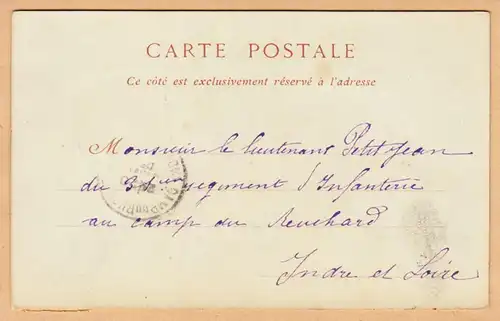 CARTE POSTALE
Ce côté est exclusivement réservé à l'adresse
Monsieur le lieutenant Petitjean
du régiment d'Infanterie
au camp du Ruchard
Indre et Loire